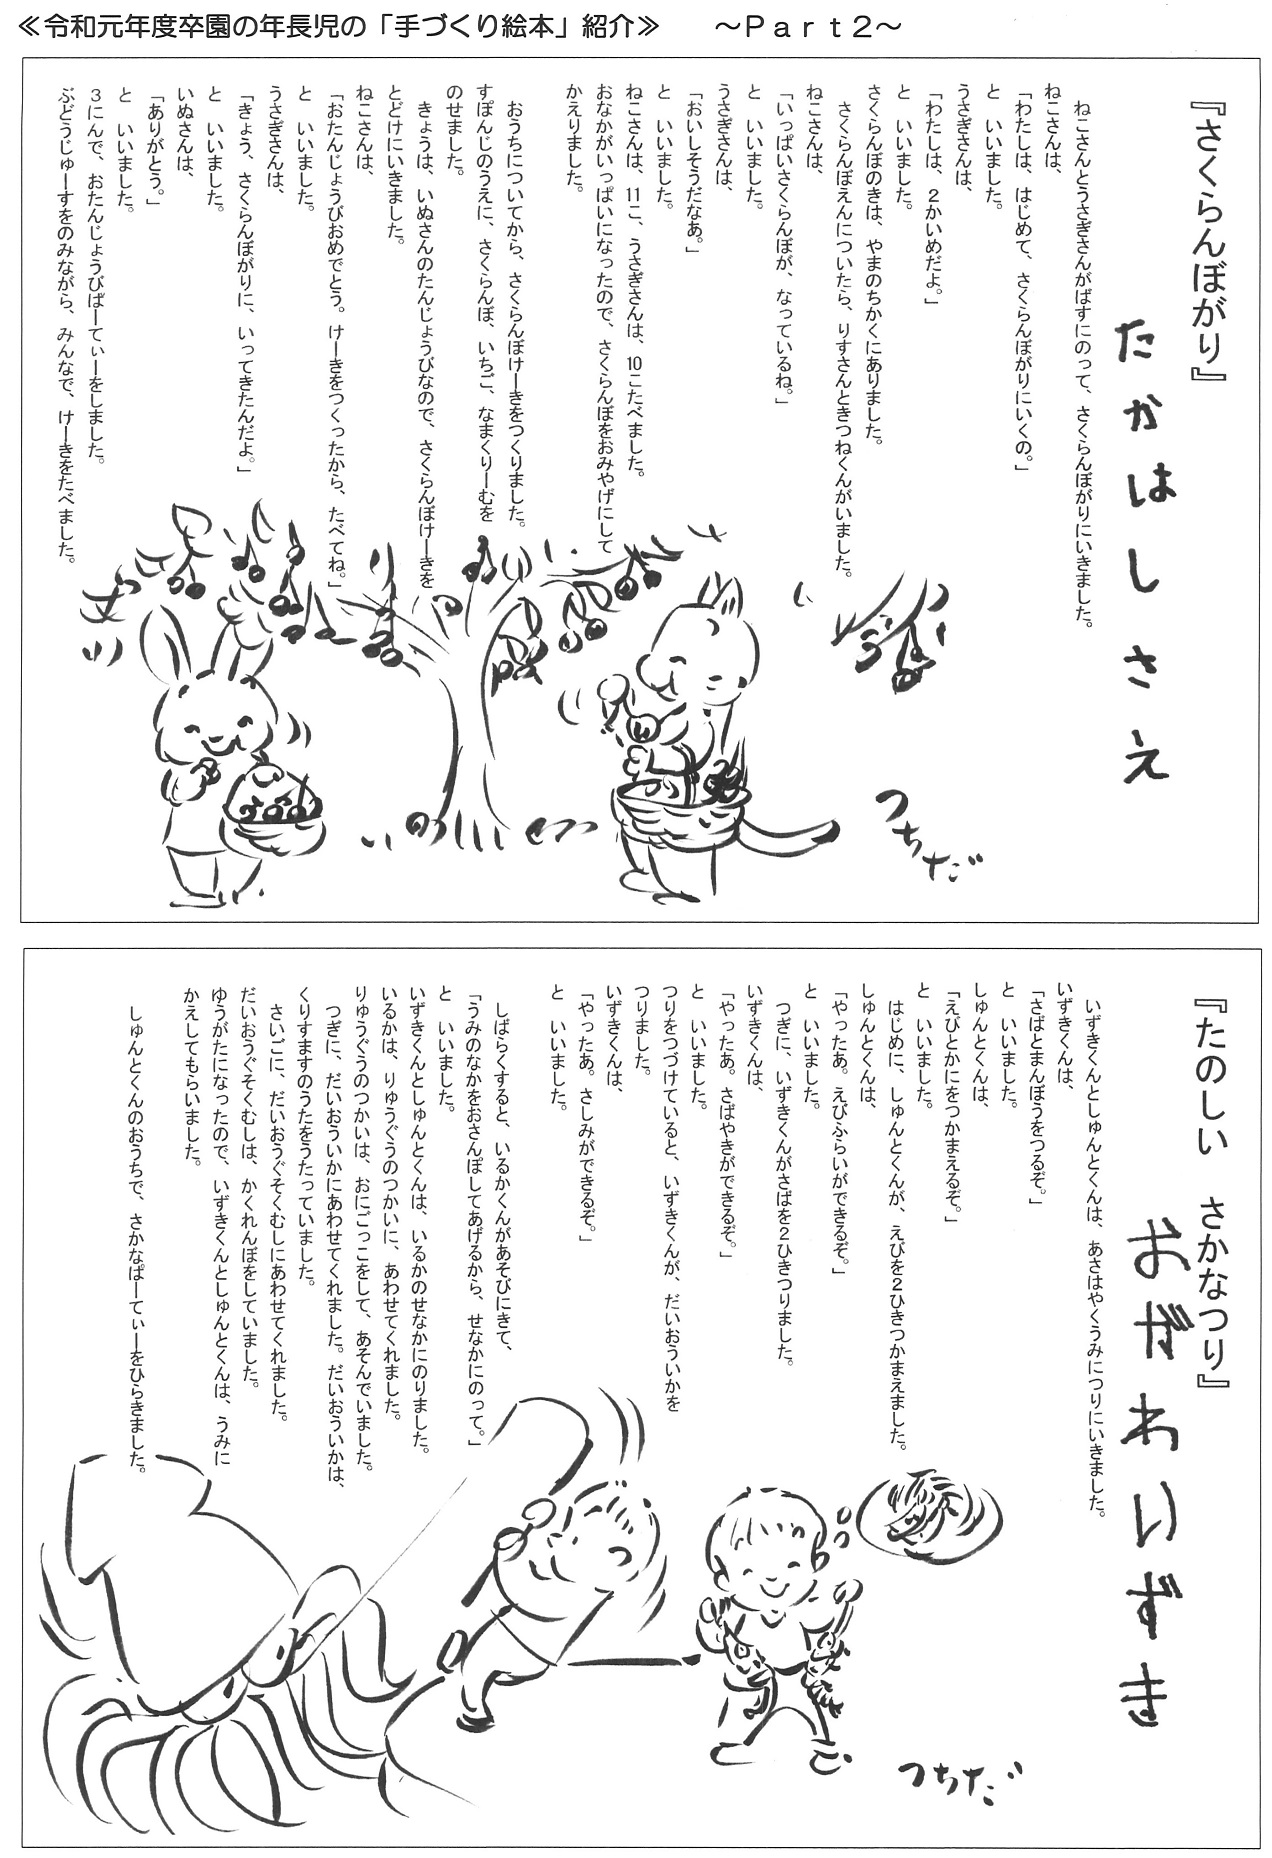 ≪令和元年度卒園の年長児の「手づくり絵本」紹介≫　～Ｐａｒｔ２～
『さくらんぼがり』
たかはしさえ
ねこさんとうさぎさんがばすにのって、さくらんぼがりにいきました。
ねこさんは、
「わたしは、はじめて、さくらんぼがりにいくの。」
と　いいました。
うさぎさんは、
「わたしは、２かいめだよ。」
と　いいました。
さくらんぼのきは、やまのちかくにありました。
さくらんぼえんについたら、りすさんときつねくんがいました。
ねこさんは、
「いっぱいさくらんぼが、なっているね。」
と　いいました。
うさぎさんは、
「おいしそうだなあ。」
と　いいました。
ねこさんは、11こ、うさぎさんは、10こたべました。
おなかがいっぱいになったので、さくらんぼをおみやげにして
かえりました。
おうちについてから、さくらんぼけーきをつくりました。
すぽんじのうえに、さくらんぼ、いちご、なまくりーむを
のせました。
きょうは、いぬさんのたんじょうびなので、さくらんぼけーきを
とどけにいきました。
ねこさんは、
「おたんじょうびおめでとう。けーきをつくったから、たべてね。」
と　いいました。
うさぎさんは、
「きょう、さくらんぼがりに、いってきたんだよ。」
と　いいました。
いぬさんは、
「ありがとう。」
と　いいました。
３にんで、おたんじょうびぱーてぃーをしました。
ぶどうじゅーすをのみながら、みんなで、けーきをたべました。
つちだ
『たのしい　さかなつり』
おがわいずき
いずきくんとしゅんとくんは、あさはやくうみにつりにいきました。
いずきくんは、
「さばとまんぼうをつるぞ。」
と　いいました。
しゅんとくんは、
「えびとかにをつかまえるぞ。」
と　いいました。
はじめに、しゅんとくんが、えびを２ひきつかまえました。
しゅんとくんは、
「やったあ。えびふらいができるぞ。」
と　いいました。
つぎに、いずきくんがさばを２ひきつりました。
いずきくんは、
「やったあ。さばやきができるぞ。」
と　いいました。
つりをつづけていると、いずきくんが、だいおういかを
つりました。
いずきくんは、
「やったあ。さしみができるぞ。」
と　いいました。
しばらくすると、いるかくんがあそびにきて、
「うみのなかをおさんぽしてあげるから、せなかにのって。」
と　いいました。
いずきくんとしゅんとくんは、いるかのせなかにのりました。
いるかは、りゅうぐうのつかいに、あわせてくれました。
りゅうぐうのつかいは、おにごっこをして、あそんでいました。
つぎに、だいおういかにあわせてくれました。だいおういかは、
くりすますのうたをうたっていました。
さいごに、だいおうぐそくむしにあわせてくれました。
だいおうぐそくむしは、かくれんぼをしていました。
ゆうがたになったので、いずきくんとしゅんとくんは、うみに
かえしてもらいました。
しゅんとくんのおうちで、さかなぱーてぃーをひらきました。
つちだ